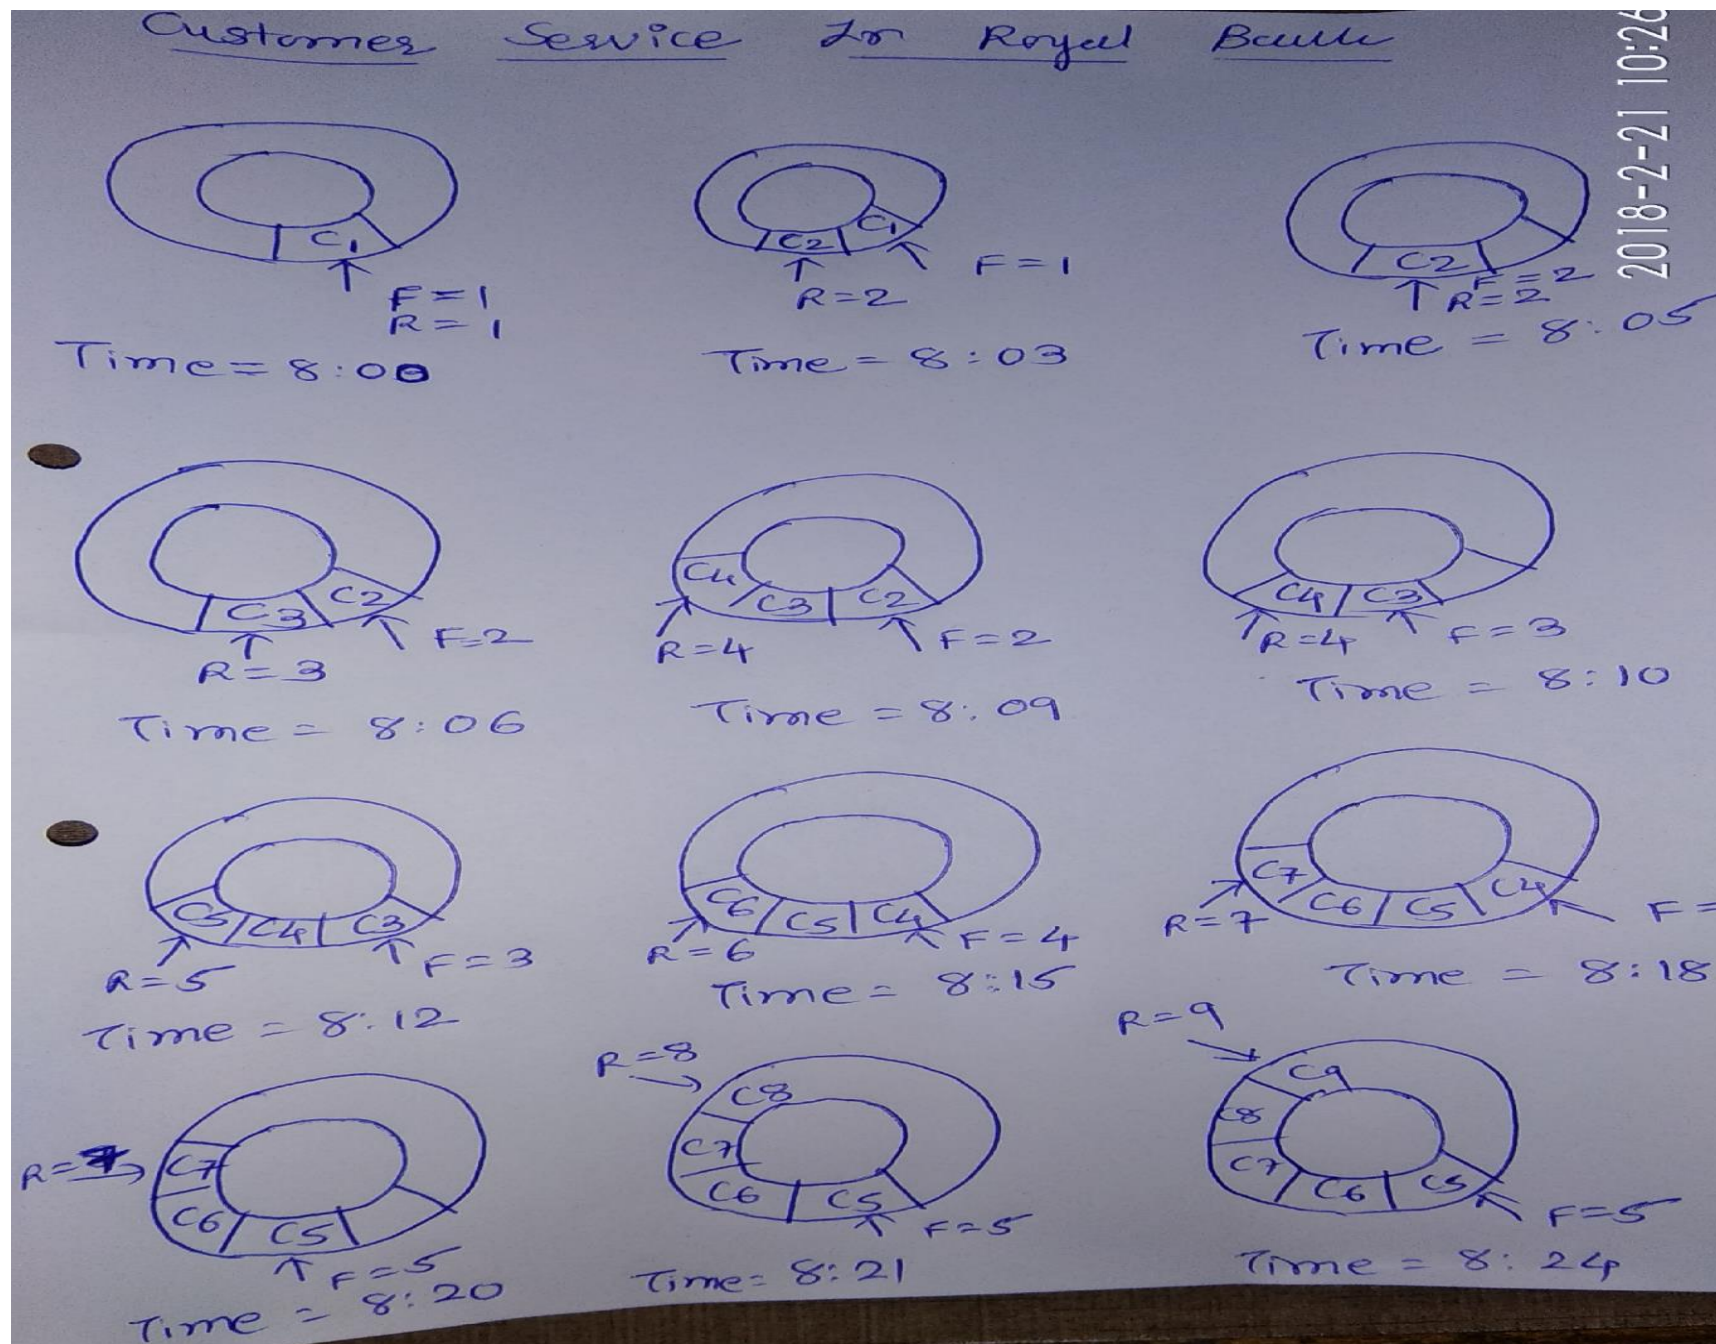 Customer Service In Royal Bank
2018-2-21 10:26
C1
F=1
R=1
Time=8:00
C2 C1
F=1
R=2
Time=8:03
C2
F=2
R=2
Time=8:05
C3 C2
F=2
R=3
Time=8:06
C4 C3 C2
R=4 F=2
Time=8:09
C4 C3
R=4 F=3
Time=8:10
C5 C4 C3
R=5 F=3
Time=8:12
C6 C5 C4
R=6 F=4
Time=8:15
C7 C6 C5 C4
R=7 F=
Time=8:18
R=7
C7
C6 C5
F=5
Time=8:20
R=8
C8
C7
C6 C5
F=5
Time=8:21
R=9
C9
C8
C7 C6 C5
F=5
Time=8:24